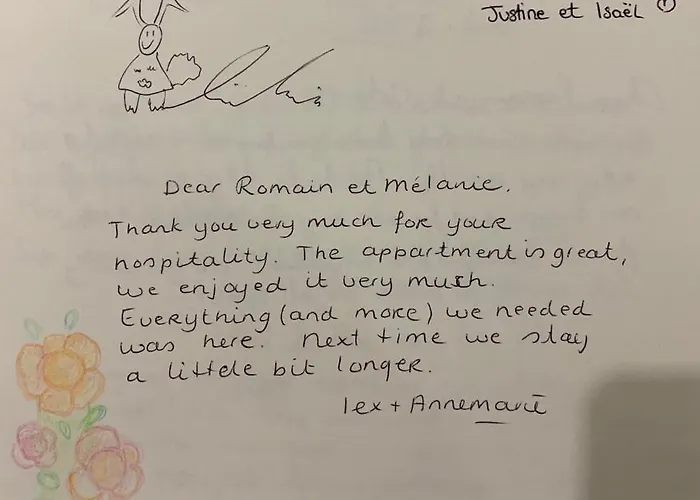 Justine et Isaël
Dear Romain et Mélanie.
Thank you very much for your
hospitality. The appartment is great,
we enjoyed it very much.
Everything (and more) we needed
was here. Next time we stay
a little bit longer.
lex + Annemarie